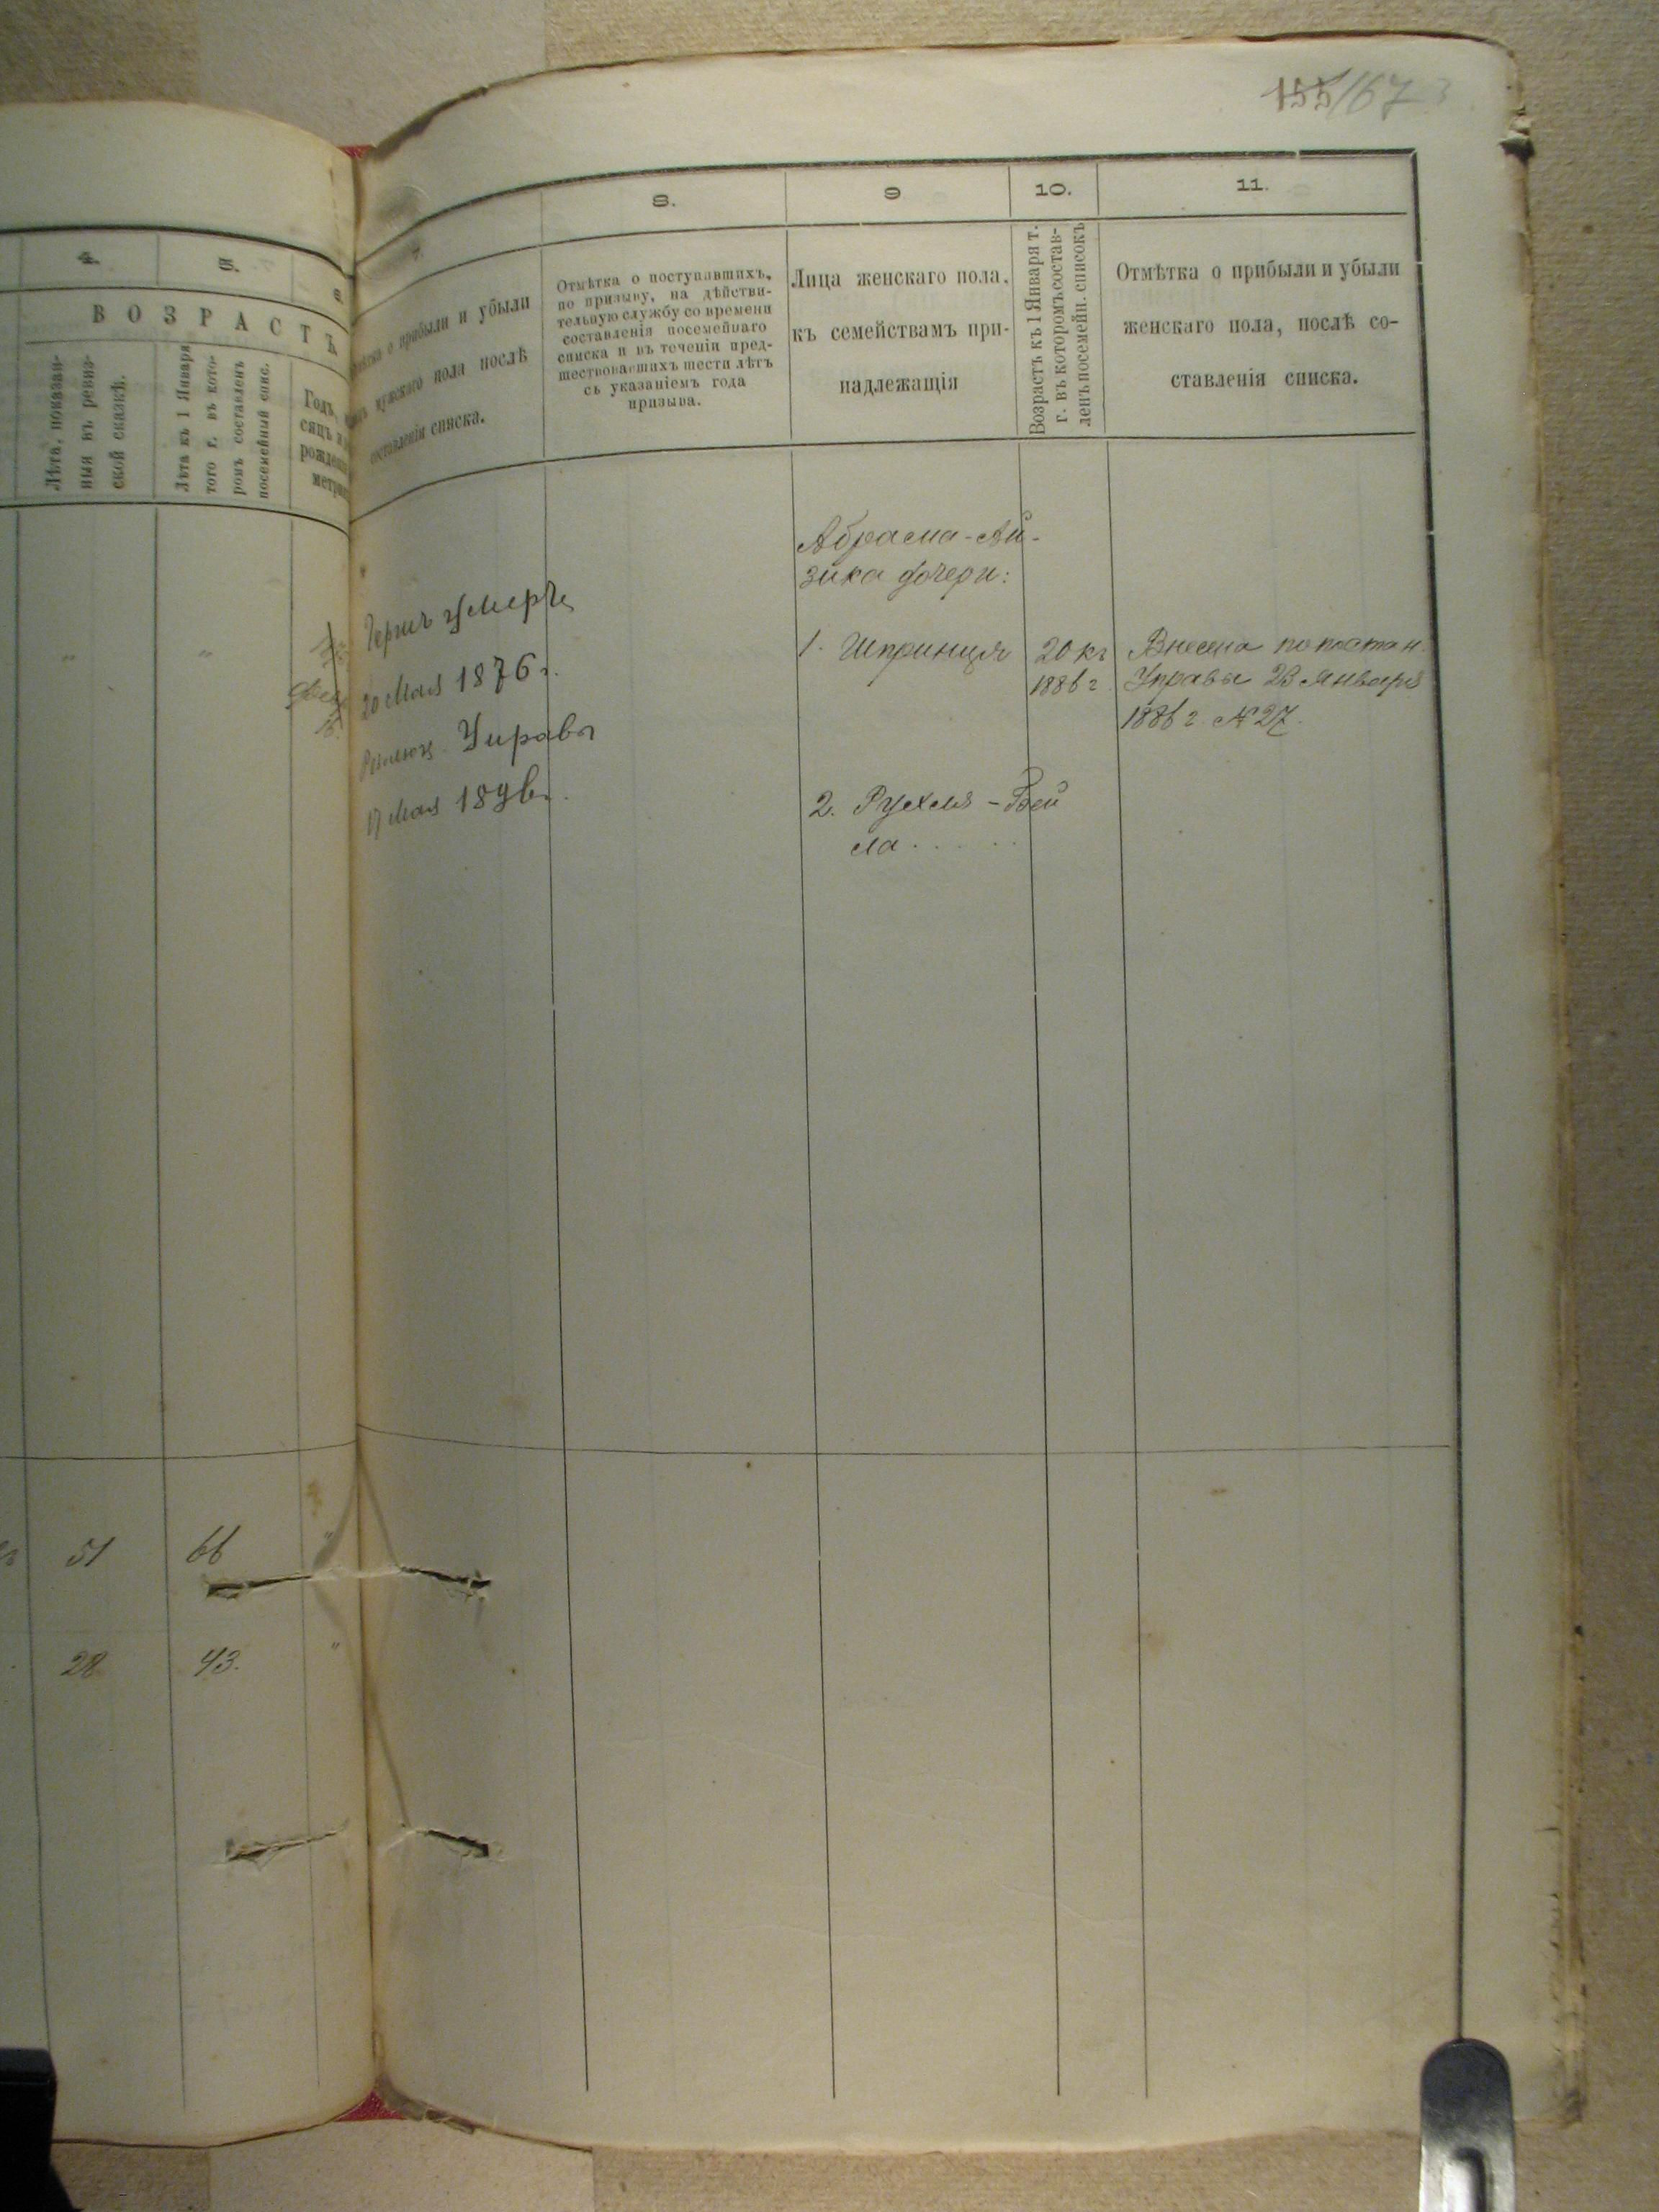 155/167
4.
5.
6.
ВОЗРАСТЪ
Лѣта, показан-
ныя въ ревиз-
ской сказкѣ.
Лѣта къ 1 Января
того г. въ кото-
ромъ составленъ
посемейный спис.
Годъ,
рожден
метри
51
66
28
43.
7.
о прибыли и убыли
мужскаго пола послѣ
составленіи списка.
8.
Отмѣтка о поступавшихъ,
по призыву, на дѣйстви-
тельную службу со времени
составленія посемейнаго
списка и въ теченіи пред-
шествовавшихъ шести лѣтъ
съ указаніемъ года
призыва.
9
Лица женскаго пола,
къ семействамъ при-
надлежащія
10.
Возрастъ къ 1 Января т.
г. въ которомъ состав-
ленъ посемейн. списокъ
11.
Отмѣтка о прибыли и убыли
женскаго пола, послѣ со-
ставленія списка.
умеръ
20 Мая 1876 г.
Управы
17 Мая 1896 г.
Абрама-Ай-
зика дочери:
1. Шпринця
20 къ
1886 г.
Внесена по постан.
Управы 23 Января
1886 г. № 27.
2. Рухля-Бей
ла . . . . .